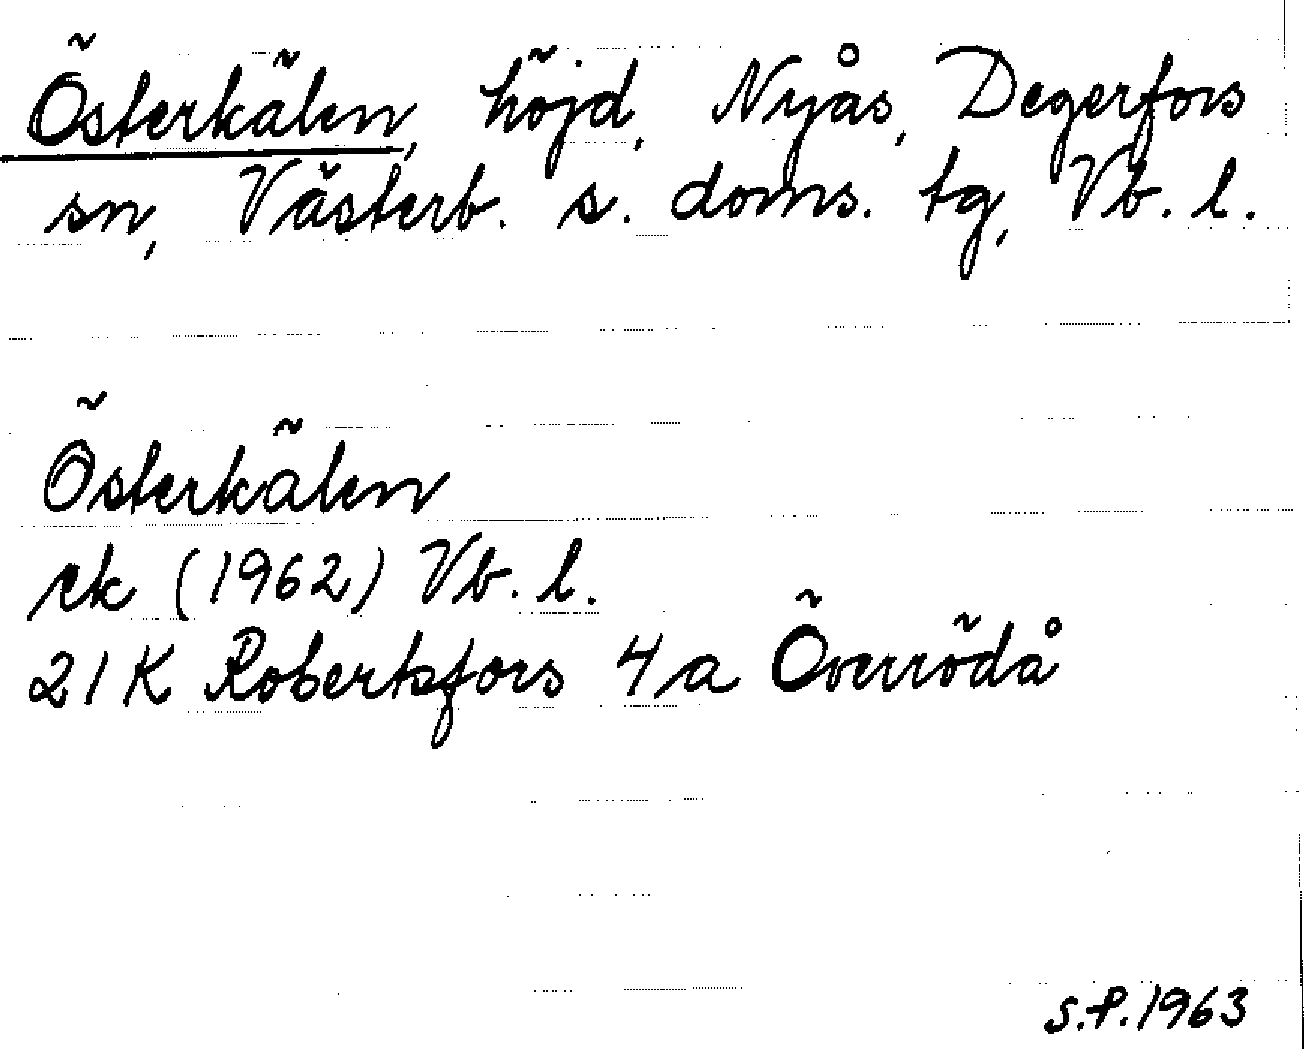 Österkälen, höjd, Nyås, Degerfors
sn, Västerb. s. doms. tg, Vb. l.
Österkälen
rk (1962) Vb. l.
21 K Robertsfors 4 a Överrödå
S.P. 1963